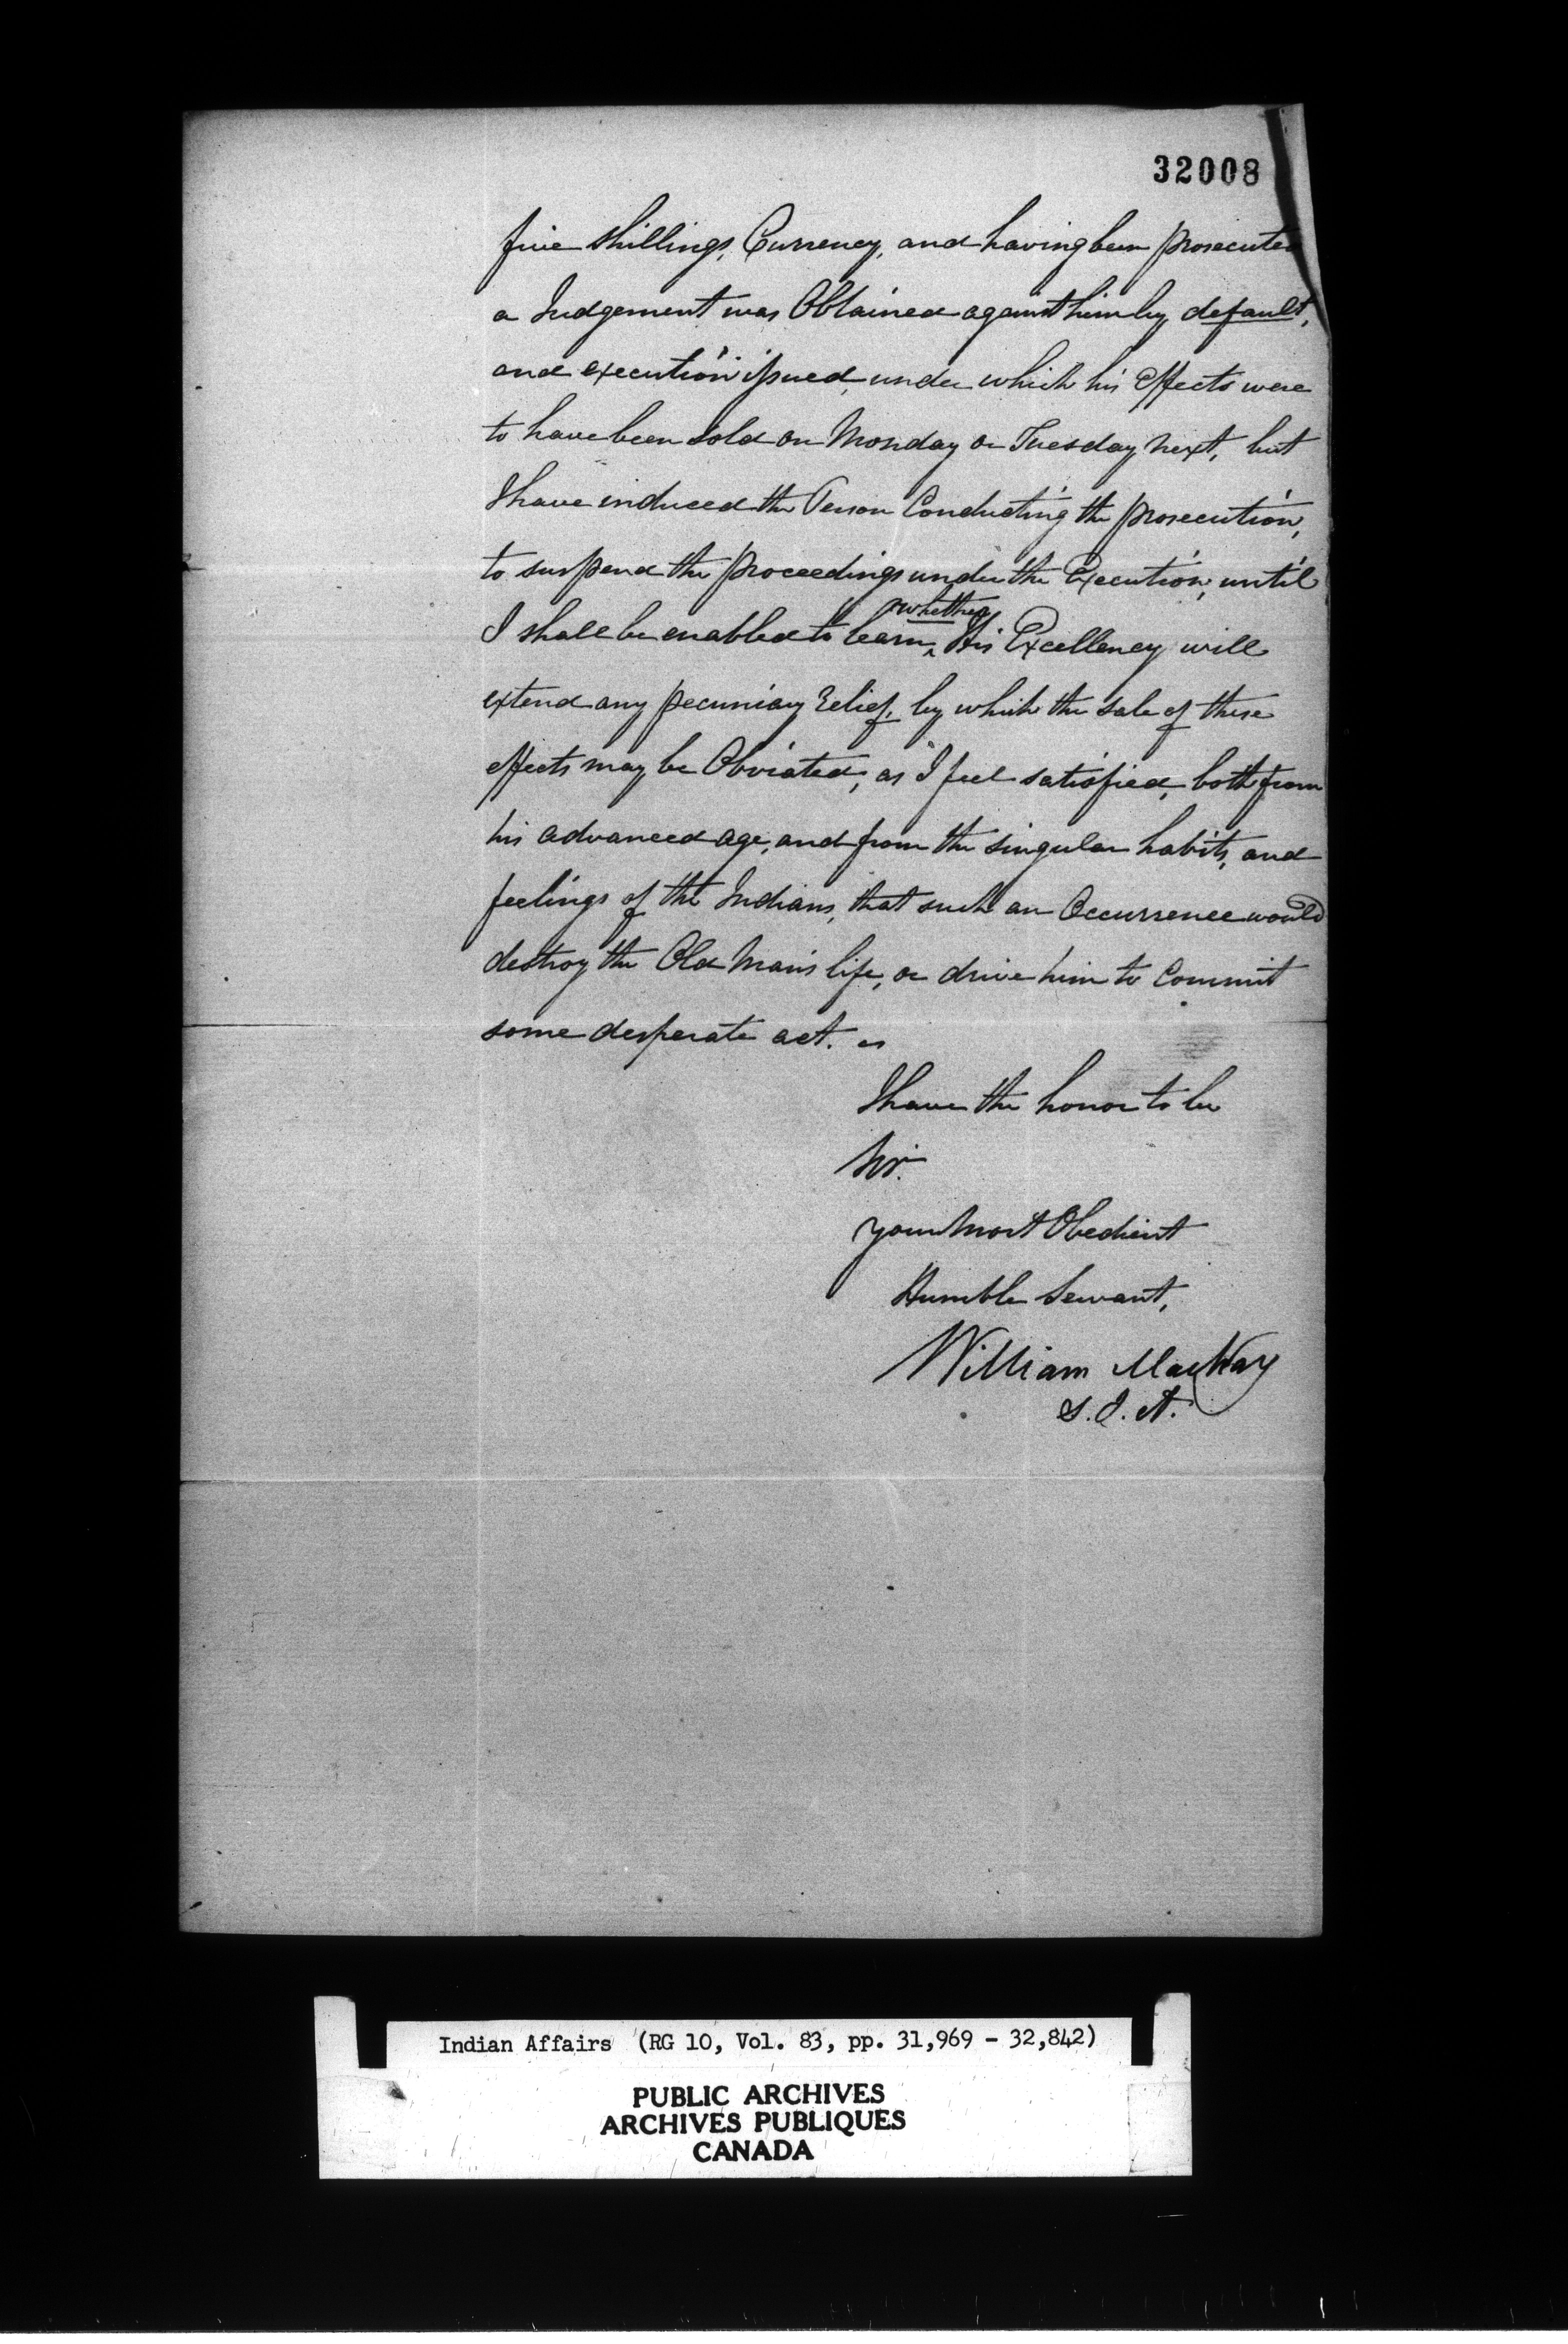 32008
five shillings, Currency, and having been prosecuted
a Judgement was Obtained against him by default,
and execution issued, under which his Effects were
to have been Sold on Monday or Tuesday next, but
I have induced the Person Conducting the prosecution,
to suspend the proceedings under the Execution, until
whether
I shall be enabled to learn ‸ His Excellency will
extend any pecuniary relief, by which the sale of these
effects may be Obviated, as I feel satisfied, both from
his advanced age, and from the singular habits, and
feelings of the Indians, that such an Occurrence would
destroy the Old Man's life, or drive him to Commit
some desperate act.
I have the honor to be
Sir.
Your Most Obedient
Humble Servant,
William MacKay
S. I. A.
Indian Affairs (RG 10, Vol. 83, pp. 31,969 - 32,842)
PUBLIC ARCHIVES
ARCHIVES PUBLIQUES
CANADA